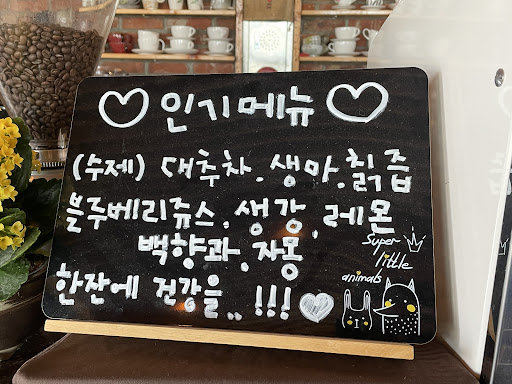 ♡ 인기메뉴 ♡
(수제) 대추차. 생마. 칡즙
블루베리쥬스. 생강. 레몬
백향과. 자몽
한잔에 건강을.. !!! ♡
Super
little
animals